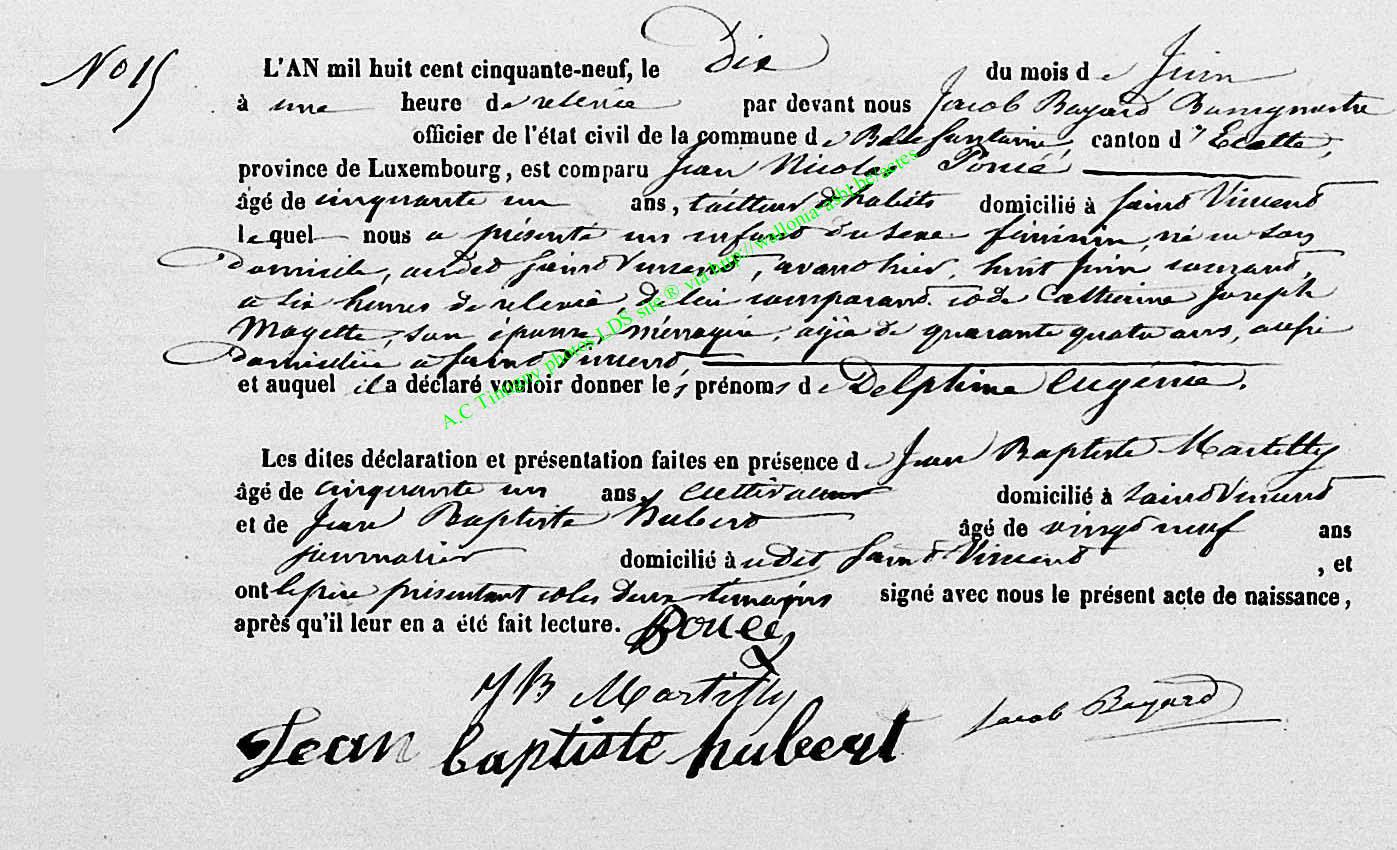 No 15
L'AN mil huit cent cinquante-neuf, le Dix du mois de Juin
à une heure de relevée par devant nous Jacob Bayard Bourgmestre
officier de l'état civil de la commune de Bellefontaine, canton d' Etalle,
province de Luxembourg, est comparu Jean Nicolas Poncé
âgé de cinquante un ans, tailleur d'habits domicilié à Saint Vincent
lequel nous a présenté un enfant du sexe féminin, né en son
domicile, audit Saint Vincent, avant hier, huit Juin courant,
a six heures de relevée, de lui comparant et de Catherine Joseph
Mayette, son épouse, ménagère, agée de quarante quatre ans, aussi
domiciliée a Saint Vincent,
et auquel il a déclaré vouloir donner les prénoms de Delphine Eugénie.
A.C Timmy photos LDS site ® via http://wallonia-asbl.be/actes
Les dites déclaration et présentation faites en présence de Jean Baptiste Martilly
âgé de cinquante un ans, cultivateur domicilié à Saint Vincent
et de Jean Baptiste Hubert âgé de vingt neuf ans
journalier domicilié à udit Saint Vincent, et
ont le père présentant et les deux témoins signé avec nous le présent acte de naissance,
après qu'il leur en a été fait lecture. Poncé
JB Martilly
Jacob Bayard
Jean baptiste hubert